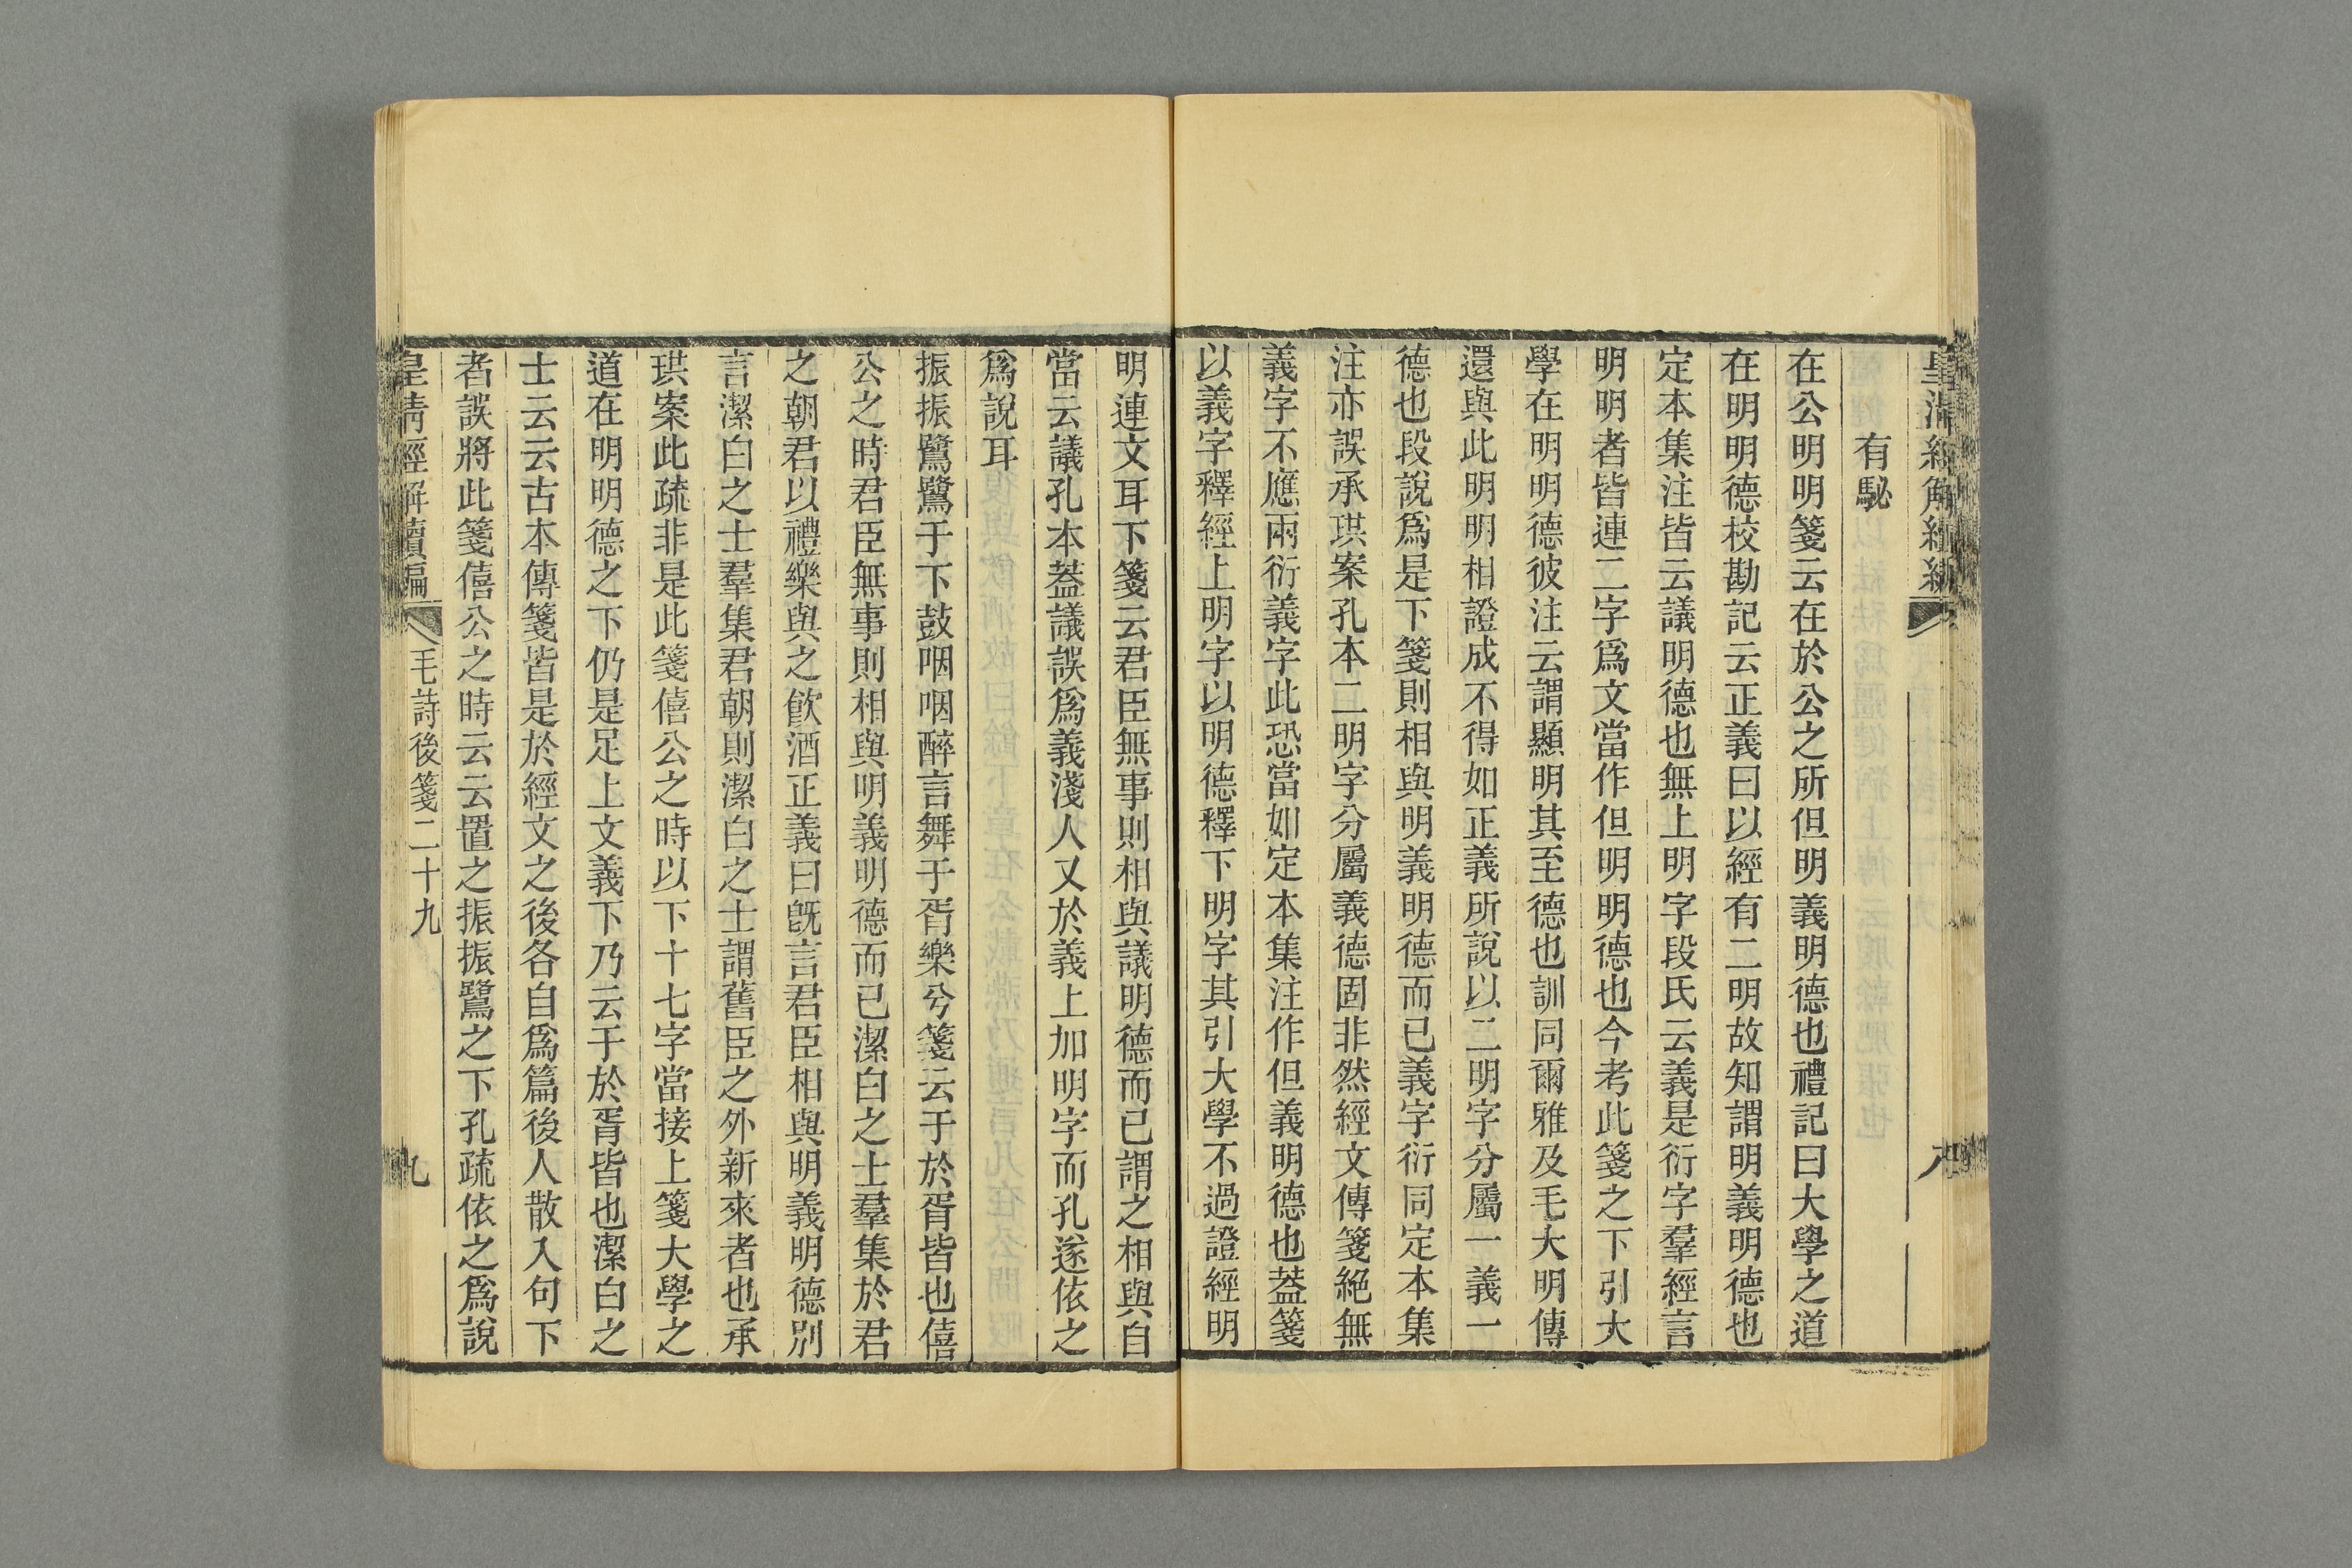 有駜
在公明明箋云在於公之所但明義明德也禮記曰大學之道
在明明德校勘記云正義曰以經有二明故知謂明義明德也
定本集注皆云議明德也無上明字段氏云義是衍字羣經言
明明者皆連二字爲文當作但明明德也今考此箋之下引大
學在明明德彼注云謂顯明其至德也訓同爾雅及毛大明傳
還與此明明相證成不得如正義所說以二明字分屬一義一
德也段說爲是下箋則相與明義明德而已義字衍同定本集
注亦誤承珙案孔本二明字分屬義德固非然經文傳箋絕無
義字不應兩衍義字此恐當如定本集注作但義明德也葢箋
以義字釋經上明字以明德釋下明字其引大學不過證經明
明連文耳下箋云君臣無事則相與議明德而已謂之相與自
當云議孔本葢議誤爲義淺人又於義上加明字而孔遂依之
爲說耳
振振鷺鷺于下鼓咽咽醉言舞于胥樂兮箋云于於胥皆也僖
公之時君臣無事則相與明義明德而已潔白之士羣集於君
之朝君以禮樂與之飲酒正義曰旣言君臣相與明義明德別
言潔白之士羣集君朝則潔白之士謂舊臣之外新來者也承
珙案此疏非是此箋僖公之時以下十七字當接上箋大學之
道在明明德之下仍是足上文義下乃云于於胥皆也潔白之
士云云古本傳箋皆是於經文之後各自爲篇後人散入句下
者誤將此箋僖公之時云云置之振振鷺之下孔疏依之爲說
皇清經解續編 毛詩後箋二十九 九